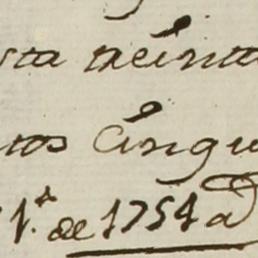 sta treinta
tos cinqu
1.º de 1754 a